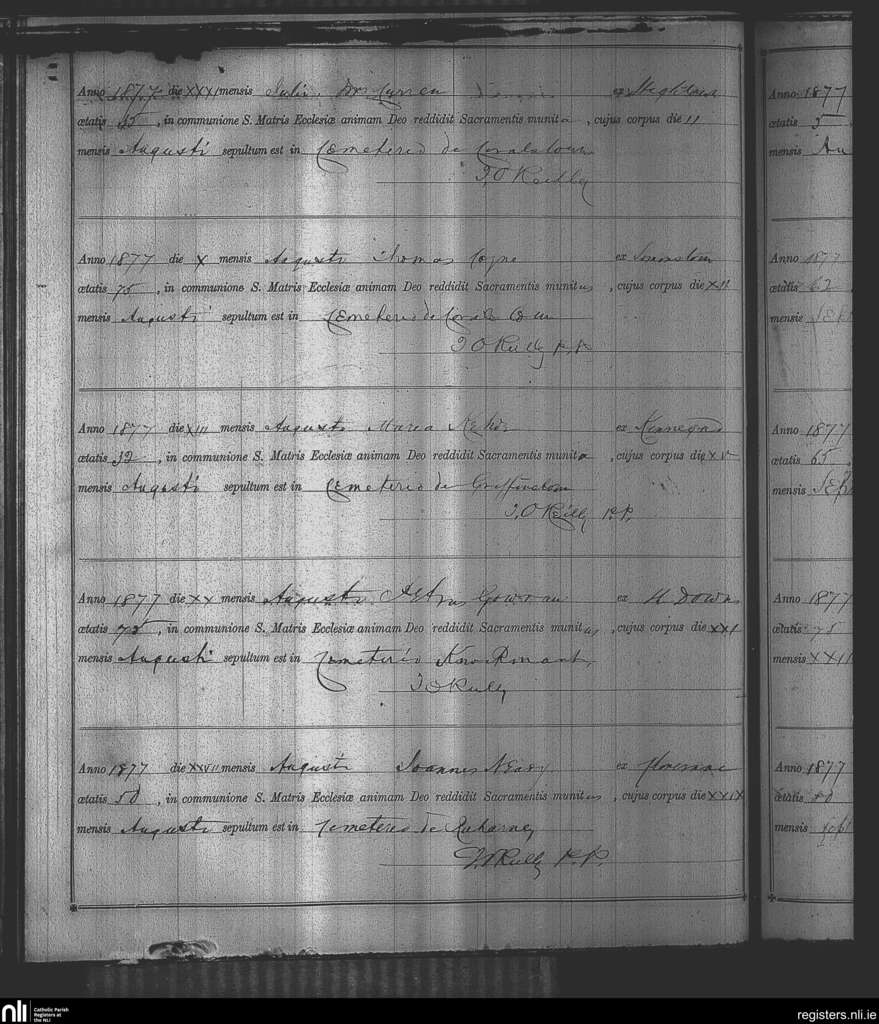 Anno 1877 die XXXI mensis Julii Mrs Curren ex
ætatis 45, in communione S. Matris Ecclesiæ animam Deo reddidit Sacramentis munita, cujus corpus die 11
mensis Augusti sepultum est in Cemeterio de Coralstown
J. O Reilly
Anno 1877 die X mensis Augusti Thomas Coyne ex
ætatis 75, in communione S. Matris Ecclesiæ animam Deo reddidit Sacramentis munitus, cujus corpus die XII
mensis Augusti sepultum est in Cemeterio de
J O Reilly P.P.
Anno 1877 die XIII mensis Augusti Maria Kehoe ex Kinnegad
ætatis 32, in communione S. Matris Ecclesiæ animam Deo reddidit Sacramentis munita, cujus corpus die XV
mensis Augusti sepultum est in Cemeterio de Griffinstown
J. O Reilly P.P.
Anno 1877 die XX mensis Augusti Petrus Gowran ex Downs
ætatis 75, in communione S. Matris Ecclesiæ animam Deo reddidit Sacramentis munitus, cujus corpus die XXI
mensis Augusti sepultum est in Cemeterio
J O Reilly
Anno 1877 die XXVII mensis Augusti Joannes Neary ex
ætatis 50, in communione S. Matris Ecclesiæ animam Deo reddidit Sacramentis munitus, cujus corpus die XXIX
mensis Augusti sepultum est in Cemeterio de Raharney
J. O Reilly P.P.
Anno 1877
ætatis 5
mensis Au
Anno 1877
ætatis 62
mensis
Anno 1877
ætatis 65
mensis Sep
Anno 1877
ætatis 75
mensis XXII
Anno 1877
ætatis
mensis
nli Catholic Parish
Registers at
the NLI
registers.nli.ie